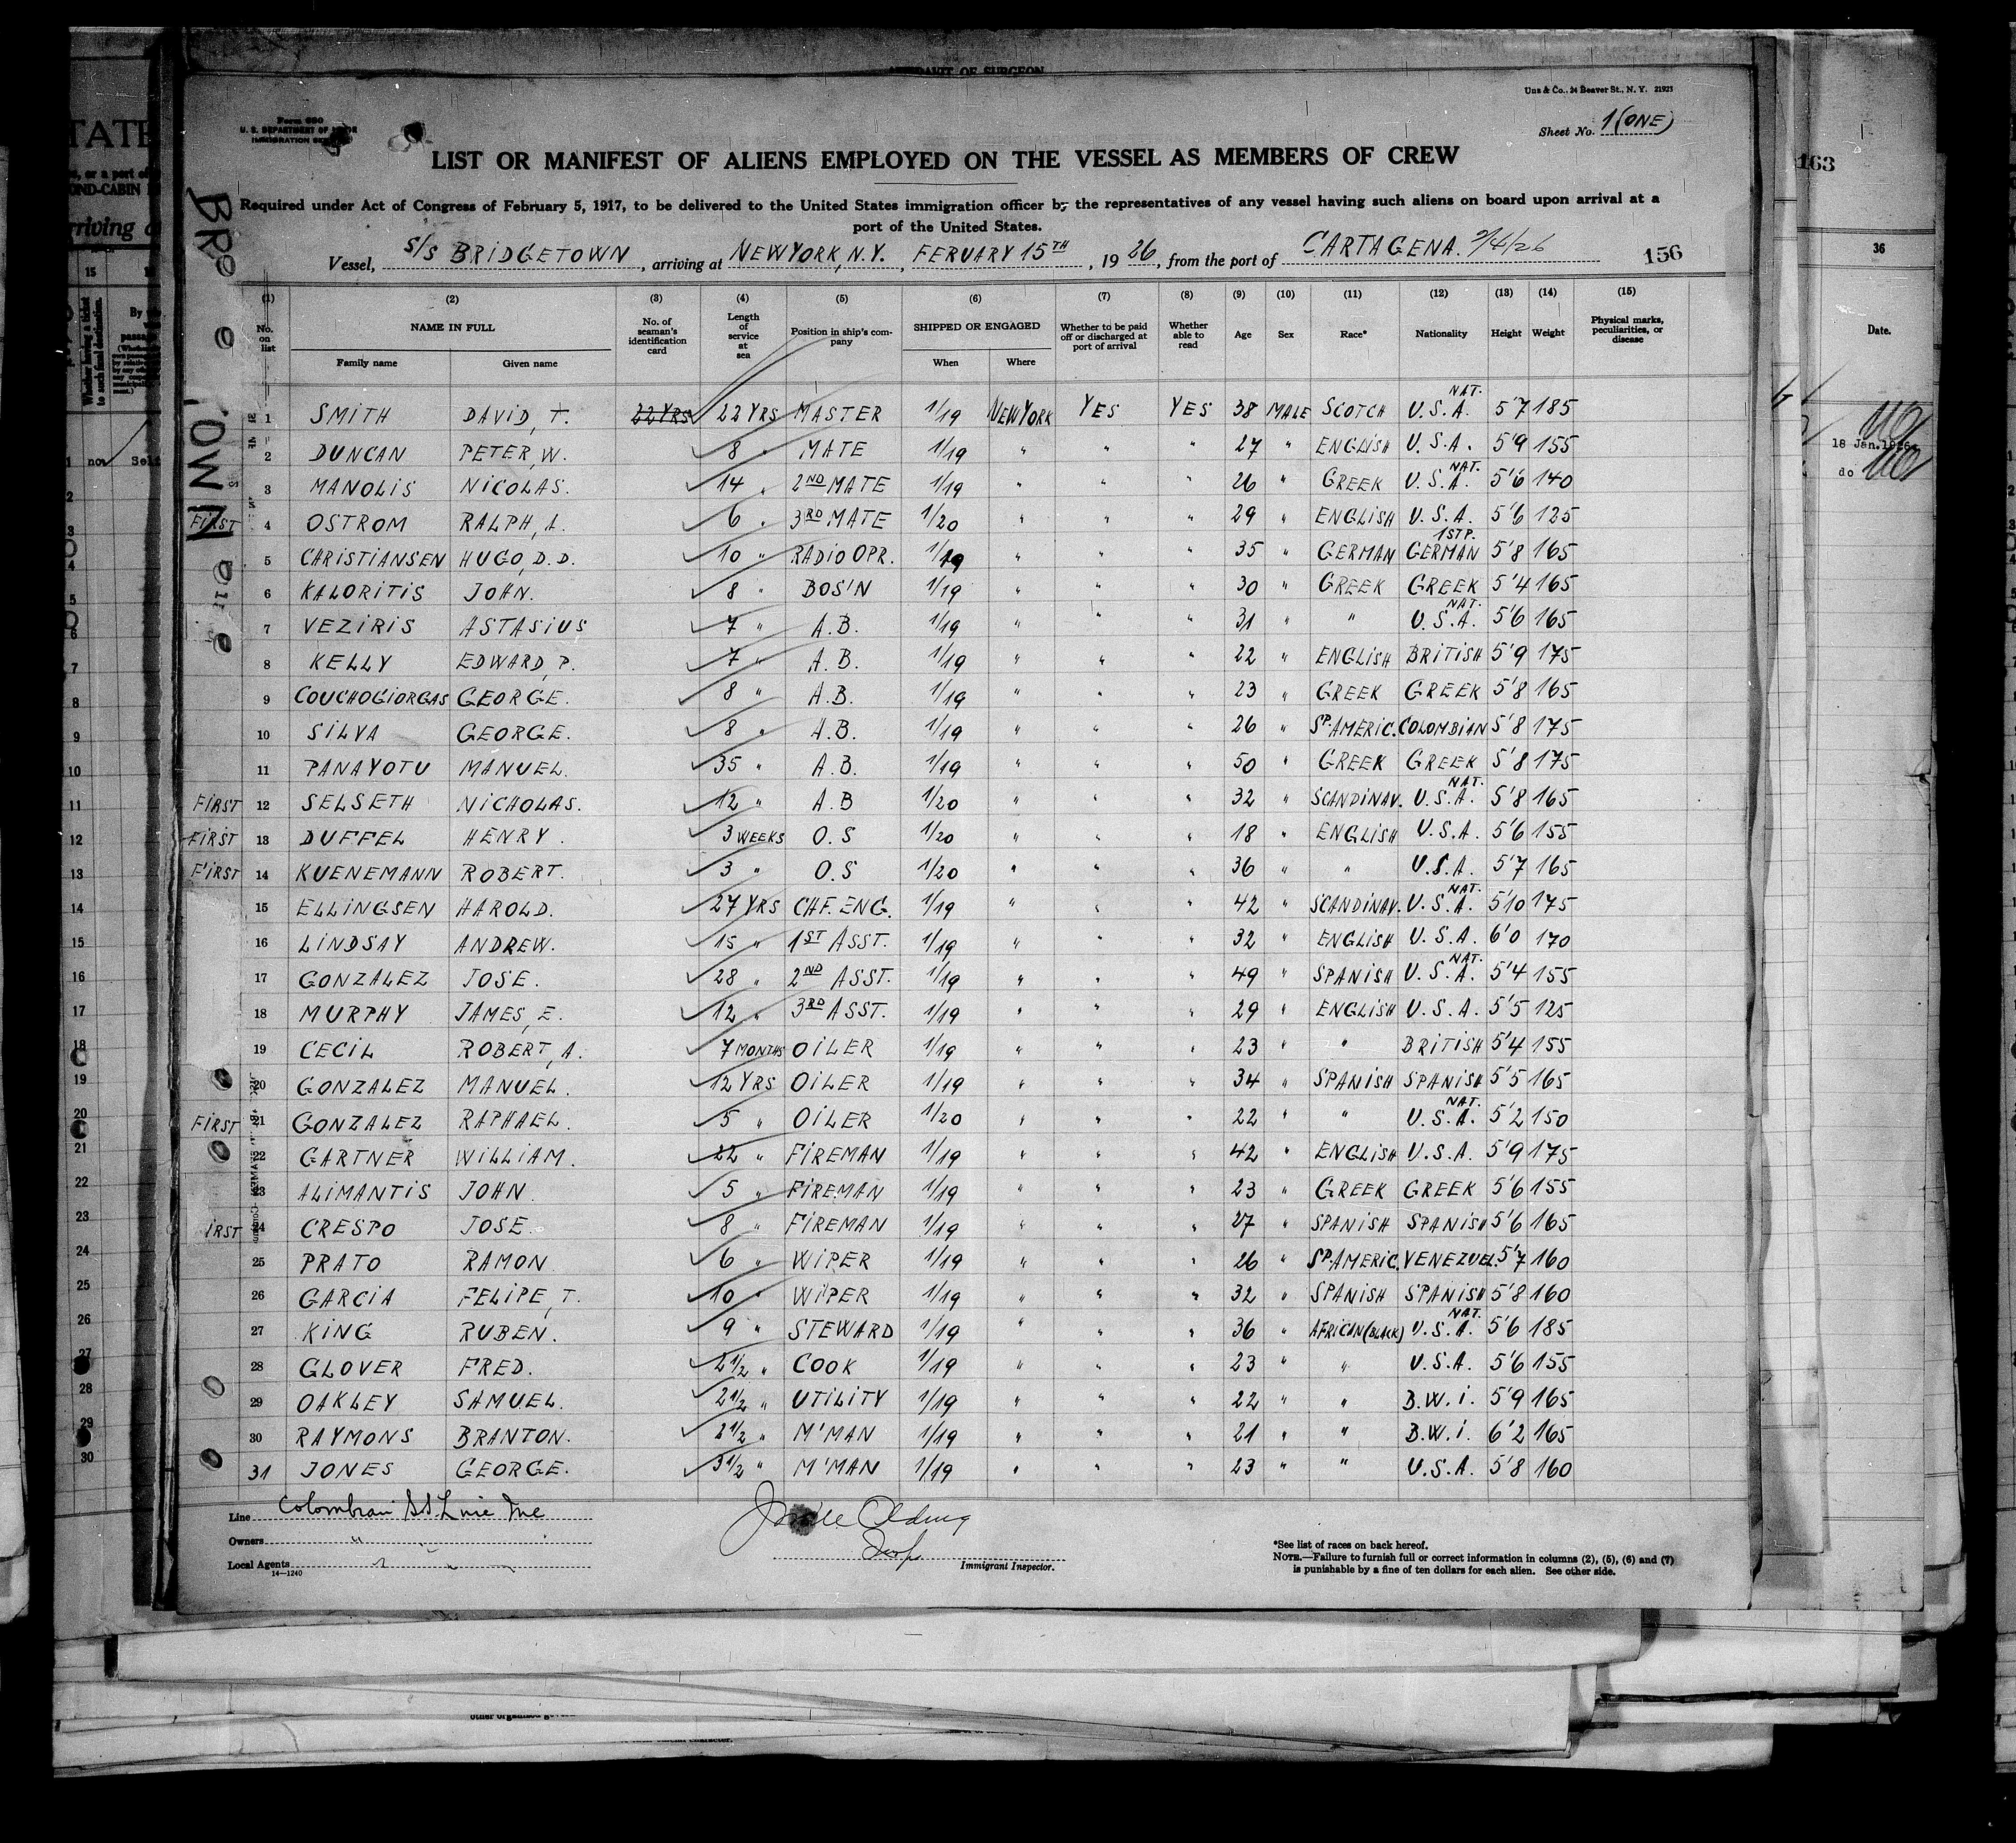 AFFIDAVIT OF SURGEON
Uns & Co., 24 Beaver St., N. Y. 21923
Form 680
U. S. DEPARTMENT OF LABOR
IMMIGRATION SERVICE
Sheet No. 1 (ONE)
LIST OR MANIFEST OF ALIENS EMPLOYED ON THE VESSEL AS MEMBERS OF CREW
Required under Act of Congress of February 5, 1917, to be delivered to the United States immigration officer by the representatives of any vessel having such aliens on board upon arrival at a
port of the United States.
Vessel, S/S BRIDGETOWN, arriving at NEW YORK, N.Y., FERUARY 15TH, 1926, from the port of CARTAGENA. 2/4/26 156
(1) (2) (3) (4) (5) (6) (7) (8) (9) (10) (11) (12) (13) (14) (15)
No. on list NAME IN FULL Family name Given name No. of seaman's identification card Length of service at sea Position in ship's company SHIPPED OR ENGAGED When Where Whether to be paid off or discharged at port of arrival Whether able to read Age Sex Race* Nationality Height Weight Physical marks, peculiarities, or disease
1 SMITH DAVID, T. 22 YRS 22 YRS MASTER 1/19 NEW YORK YES YES 38 MALE SCOTCH NAT. U.S.A. 5'7 185
2 DUNCAN PETER, W. 8 " MATE 1/19 " " " 27 " ENGLISH U.S.A. 5'9 155
3 MANOLIS NICOLAS. 14 " 2ND MATE 1/19 " " " 26 " GREEK NAT. U.S.A. 5'6 140
FIRST 4 OSTROM RALPH, A. 6 " 3RD MATE 1/20 " " " 29 " ENGLISH U.S.A. 5'6 125
5 CHRISTIANSEN HUGO, D.D. 10 " RADIO OPR. 1/19 " " " 35 " GERMAN 1ST P. GERMAN 5'8 165
6 KALORITIS JOHN. 8 " BOS'N 1/19 " " " 30 " GREEK GREEK 5'4 165
7 VEZIRIS ASTASIUS 7 " A.B. 1/19 " " " 31 " " NAT. U.S.A. 5'6 165
8 KELLY EDWARD, P. 7 " A.B. 1/19 " " " 22 " ENGLISH BRITISH 5'9 175
9 COUCHOGIORGAS GEORGE. 8 " A.B. 1/19 " " " 23 " GREEK GREEK 5'8 165
10 SILVA GEORGE. 8 " A.B. 1/19 " " " 26 " SP. AMERIC. COLOMBIAN 5'8 175
11 PANAYOTU MANUEL. 35 " A.B. 1/19 " " " 50 " GREEK GREEK 5'8 175
FIRST 12 SELSETH NICHOLAS. 12 " A.B 1/20 " " " 32 " SCANDINAV. NAT. U.S.A. 5'8 165
FIRST 13 DUFFEL HENRY. 3 WEEKS O.S 1/20 " " " 18 " ENGLISH U.S.A. 5'6 155
FIRST 14 KUENEMANN ROBERT. 3 " O.S 1/20 " " " 36 " " U.S.A. 5'7 165
15 ELLINGSEN HAROLD. 27 YRS CHF. ENG. 1/19 " " " 42 " SCANDINAV. NAT. U.S.A. 5'10 175
16 LINDSAY ANDREW. 15 " 1ST ASST. 1/19 " " " 32 " ENGLISH U.S.A. 6'0 170
17 GONZALEZ JOSE. 28 " 2ND ASST. 1/19 " " " 49 " SPANISH NAT. U.S.A. 5'4 155
18 MURPHY JAMES, E. 12 " 3RD ASST. 1/19 " " " 29 " ENGLISH U.S.A. 5'5 125
19 CECIL ROBERT, A. 7 MONTHS OILER 1/19 " " " 23 " " BRITISH 5'4 155
20 GONZALEZ MANUEL. 12 YRS OILER 1/19 " " " 34 " SPANISH SPANISH 5'5 165
FIRST 21 GONZALEZ RAPHAEL. 5 " OILER 1/20 " " " 22 " " NAT. U.S.A. 5'2 150
22 GARTNER WILLIAM. 22 " FIREMAN 1/19 " " " 42 " ENGLISH U.S.A. 5'9 175
23 ALIMANTIS JOHN. 5 " FIREMAN 1/19 " " " 23 " GREEK GREEK 5'6 155
IRST 24 CRESPO JOSE. 8 " FIREMAN 1/19 " " " 27 " SPANISH SPANISH 5'6 165
25 PRATO RAMON. 6 " WIPER 1/19 " " " 26 " SP. AMERIC. VENEZUEL. 5'7 160
26 GARCIA FELIPE, T. 10 " WIPER 1/19 " " " 32 " SPANISH SPANISH 5'8 160
27 KING RUBEN. 9 " STEWARD 1/19 " " " 36 " AFRICAN (BLACK) NAT. U.S.A. 5'6 185
28 GLOVER FRED. 2 1/2 " COOK 1/19 " " " 23 " " U.S.A. 5'6 155
29 OAKLEY SAMUEL. 2 1/2 " UTILITY 1/19 " " " 22 " " B.W.I. 5'9 165
30 RAYMONS BRANTON. 2 1/2 " M'MAN 1/19 " " " 21 " " B.W.I. 6'2 165
31 JONES GEORGE. 3 1/2 " M'MAN 1/19 " " " 23 " " U.S.A. 5'8 160
Line Colombian S.S. Line Inc
Owners " "
Local Agents " "
14—1240
Immigrant Inspector.
*See list of races on back hereof.
NOTE.—Failure to furnish full or correct information in columns (2), (5), (6) and (7)
is punishable by a fine of ten dollars for each alien. See other side.
163
36
Date.
18 Jan. 1926
do